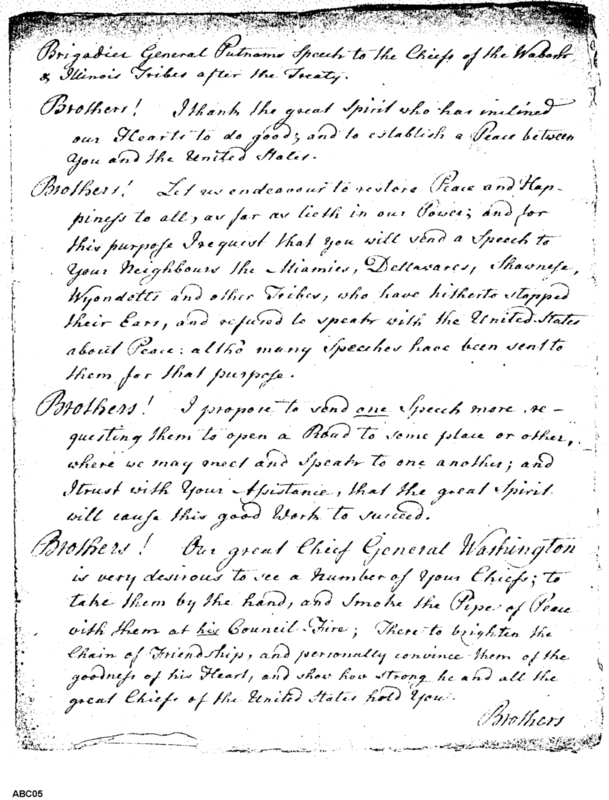 Brigadier General Putnams Speech to the Chiefs of the Wabash
& Illinois Tribes after the Treaty.
Brothers! I thank the great Spirit who has inclined
our Hearts to do good; and to establish a Peace between
You and the United States.
Brothers! Let us endeavour to restore Peace and Hap-
piness to all, as far as lieth in our Power; and for
this purpose I request that you will send a Speech to
Your Neighbours the Miamies, Dellawares, Shawnese,
Wyondotts and other Tribes, who have hitherto stopped
their Ears, and refused to speak with the United States
about Peace: altho many Speeches have been sent to
them for that purpose.
Brothers! I propose to send one Speech more re-
questing them to open a Road to some place or other,
where we may meet and Speak to one another; and
I trust with Your Assistance, that the great Spirit
will cause this good Work to succeed.
Brothers! Our great Chief General Washington
is very desirous to see a Number of Your Chiefs; to
take them by the hand, and Smoke the Pipe of Peace
with them at his Council-Fire; There to brighten the
Chain of Friendship, and personally convince them of the
goodness of his Heart, and show how strong he and all the
great Chiefs of the United States hold You.
Brothers
ABC05